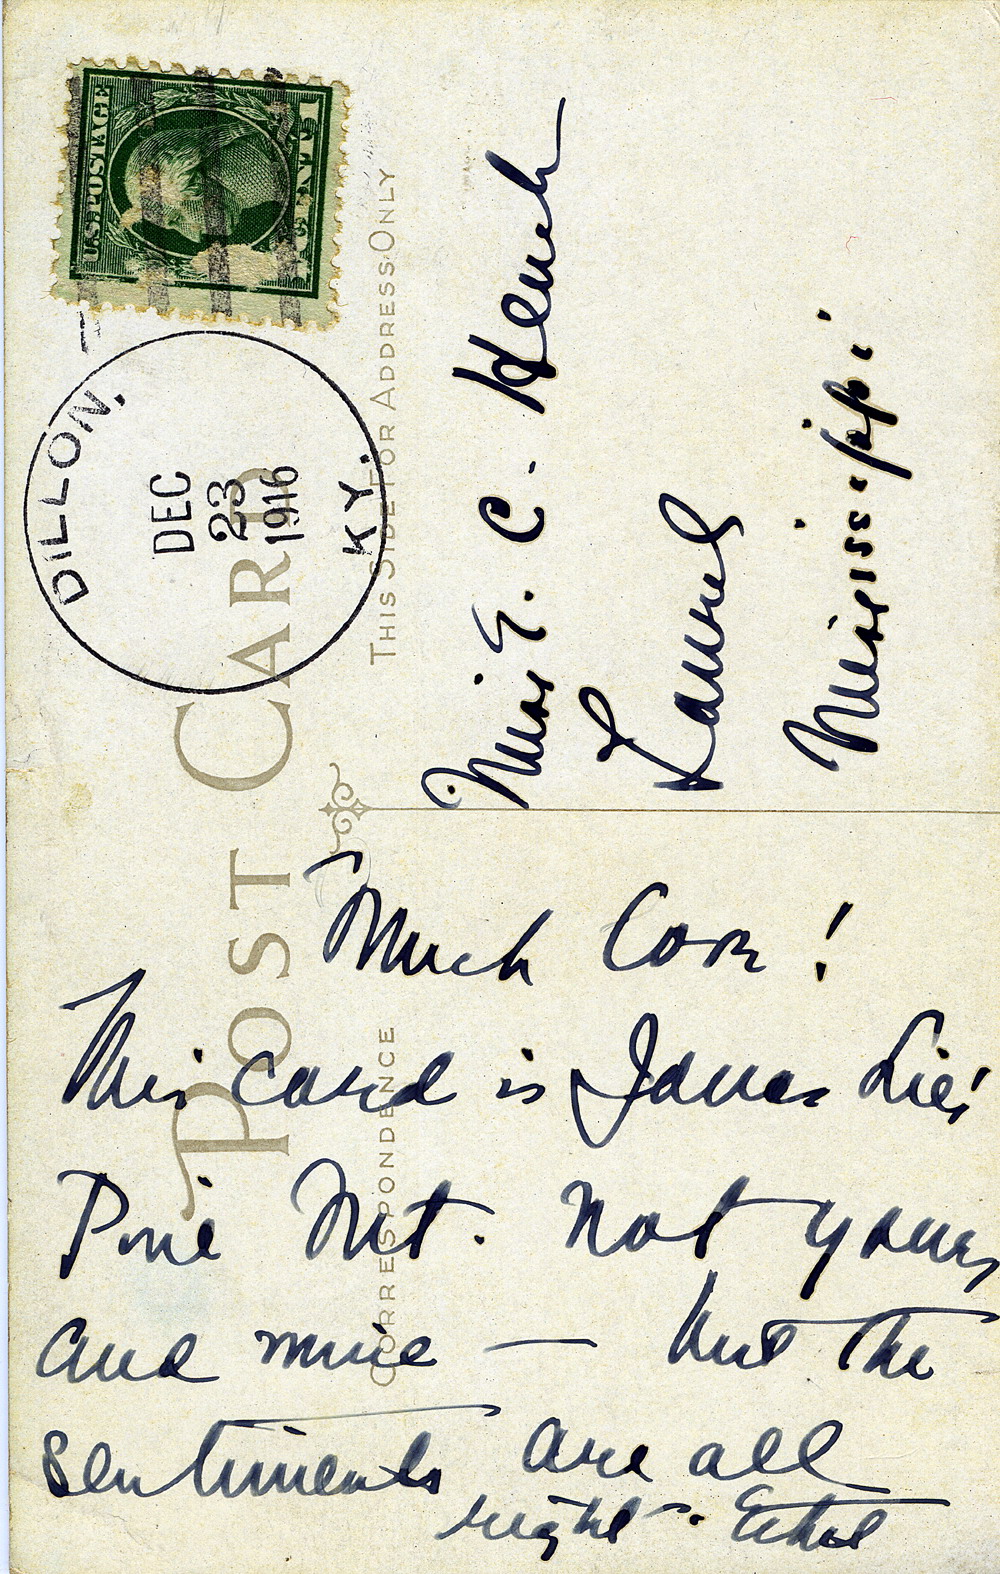 U.S. POSTAGE
1 CENT 1
DILLON,
DEC
23
1916
KY.
POST CARD
THIS SIDE FOR ADDRESS ONLY
CORRESPONDENCE
Miss E. C. Hench
Laurel
Mississippi
Much Love!
This card is James Lies'
Pine Mt. not yours
and mine — but the
sentiments are all
right. Ethel